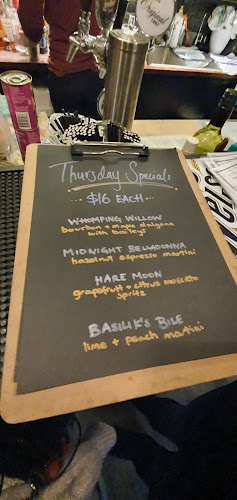 Thursday Specials
$16 EACH
WHOMPING WILLOW
bourbon + maple dalgona
with baileys
MIDNIGHT BELLADONNA
hazelnut espresso martini
HARE MOON
grapefruit + citrus moscato
spritz
BASILIK'S BILE
lime + peach martini